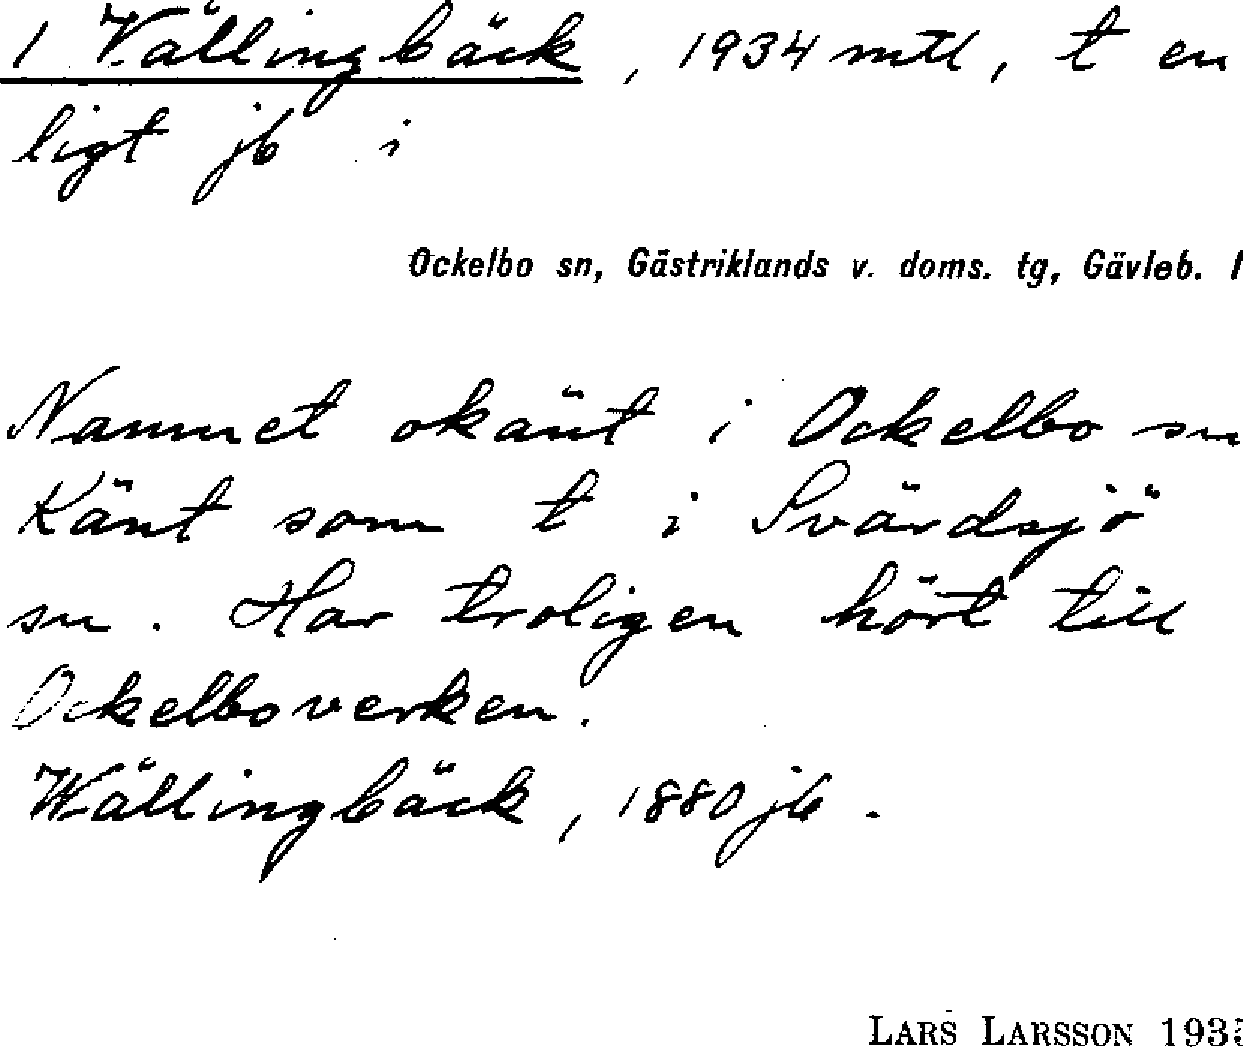 1 Vällingbäck, 1934 mtl, t en
ligt jb i
Ockelbo sn, Gästriklands v. doms. tg, Gävleb. l
Namnet okänt i Ockelbo sn
Känt som t i Svärdsjö
sn. Har troligen hört till
Ockelboverken.
Wällingbäck, 1880 jb.
LARS LARSSON